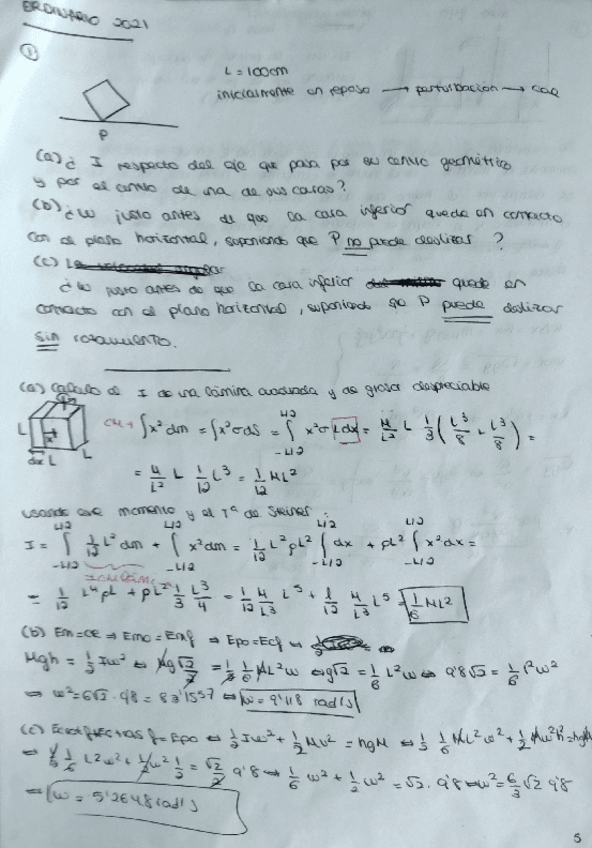 ERDINARIO 2021
①
L = 100cm
inicialmente en reposo → perturbación → cae
P
(a) ¿ I respecto del eje que pasa por su centro geométrico
y por el centro de una de sus caras?
(b) ¿ω justo antes de que la cara inferior quede en contacto
con el plano horizontal, suponiendo que P no puede deslizar ?
(c)
¿ω justo antes de que la cara inferior quede en
contacto con el plano horizontal, suponiendo que P puede deslizar
sin rozamiento.
(a) Cálculo de I de una lámina cuadrada y de grosor despreciable
L dx L L x
∫x²dm = ∫x²σdS = ∫_{-L/2}^{L/2} x²σ L dx = M/L² L 1/3 (L³/8 + L³/8) =
= M/L² L 1/12 L³ = 1/12 ML²
usando ese momento y el Tª de Steiner:
I = ∫_{-L/2}^{L/2} 1/12 L² dm + ∫_{-L/2}^{L/2} x²dm = 1/12 L² ρL² ∫_{-L/2}^{L/2} dx + ρL² ∫_{-L/2}^{L/2} x²dx =
= 1/12 L⁴ρL + ρL² 1/3 L³/4 = 1/12 M/L³ L⁵ + 1/12 M/L³ L⁵ = 1/6 ML²
(b) Em=cte ⇒ Emo = Emf ⇒ Epo = Ecf
Mgh = 1/2 Iω² ⇔ Mg √2/2 = 1/2 1/6 ML²ω ⇔ g√2 = 1/6 L²ω ⇔ 9'8√2 = 1/6 1²ω²
⇔ ω² = 6√2 · 9'8 = 83'1557 ⇔ ω = 9'118 rad/s
(c) = Epo ⇔ 1/2 Iω² + 1/2 Mv² = hgM ⇔ 1/2 1/6 ML²ω² + 1/2 Mω²h² = hgM
⇔ 1/2 1/6 L²ω² + 1/2 ω² 1/2 = √2/2 9'8 ⇔ 1/6 ω² + 1/2 ω² = √2 · 9'8 ⇔ ω² = 6/3 √2 9'8
⇔ ω = 5'2648 rad/s
5